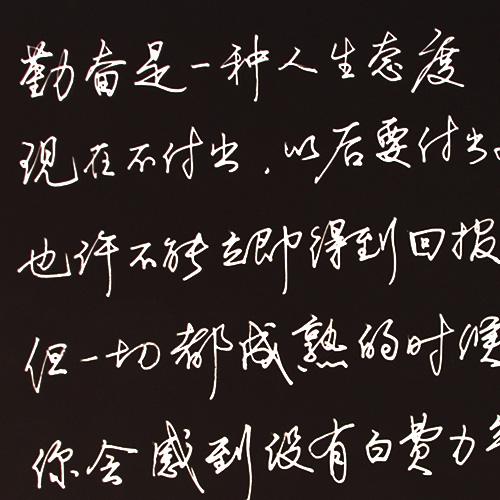 勤奋是一种人生态度
现在不付出，以后要付出
也许不能立即得到回报
但一切都成熟的时候
你会感到没有白费力气